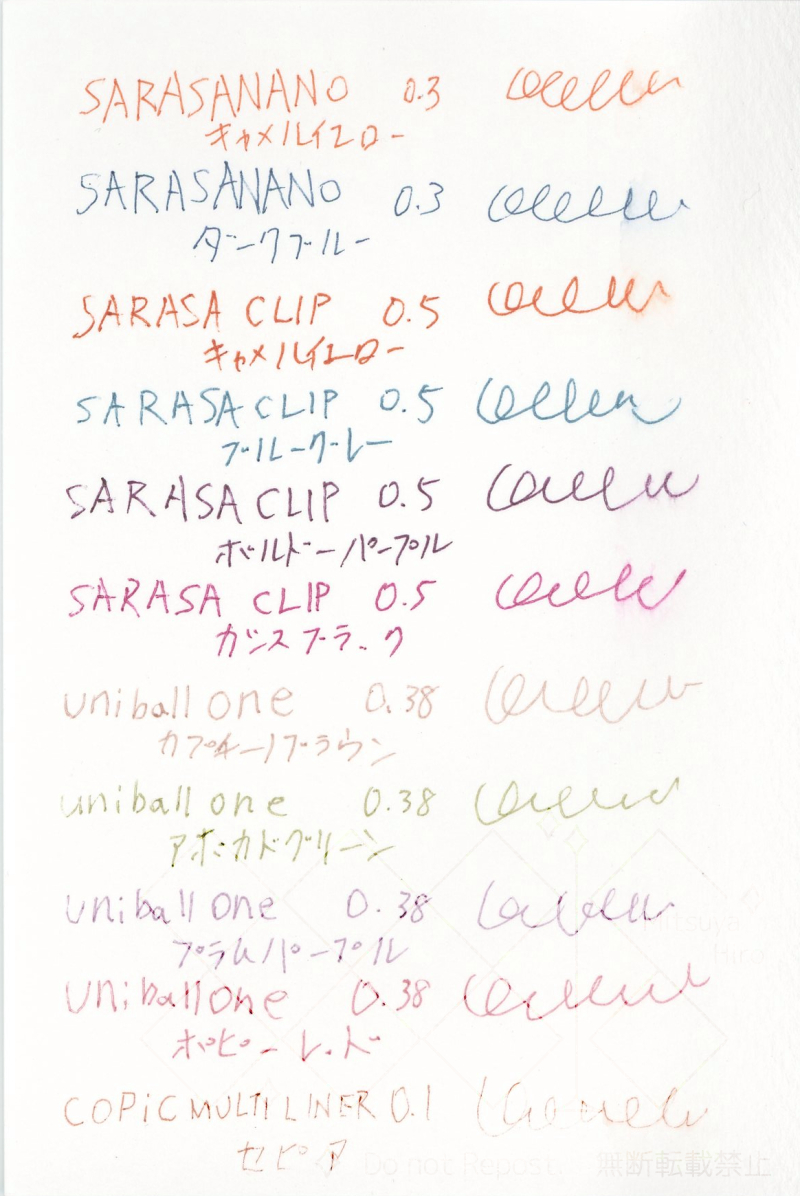 SARASANANO 0.3
キャメルイエロー
SARASANANO 0.3
ダークブルー
SARASA CLIP 0.5
キャメルイエロー
SARASA CLIP 0.5
ブルーグレー
SARASA CLIP 0.5
ボルドーパープル
SARASA CLIP 0.5
カシスブラック
uniball one 0.38
カプチーノブラウン
uniball one 0.38
アボカドグリーン
uniball one 0.38
プラムパープル
uniball one 0.38
ポピーレッド
COPiC MULTI LINER 0.1
セピア
Mitsuya
Hiro
Do not Repost. 無断転載禁止